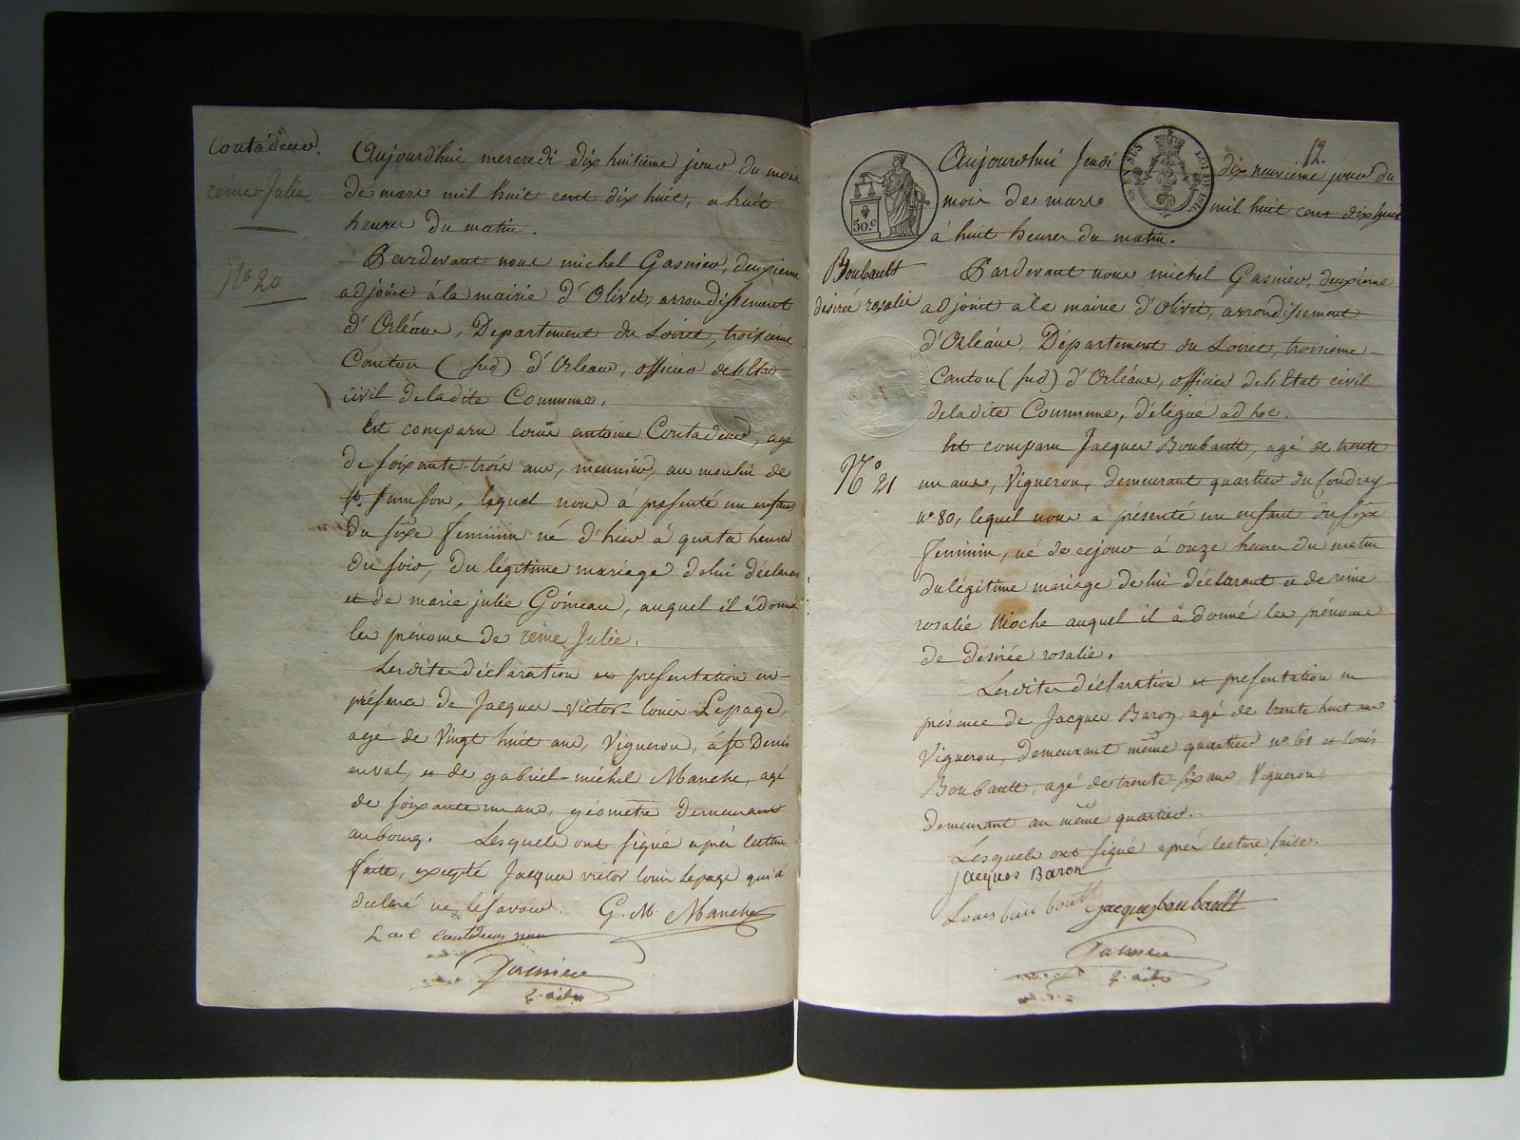 Contadeur.
reine Julie
N° 20
Aujourd'hui mercredi dix huitième jour du mois
de mars mil huit cent dix huit, a huit
heures du matin.
Pardevant nous michel Gasnier, deuxieme
adjoint á la mairie d'Olivet, arrondissement
d'Orléans, Departement du Loiret, troisieme
Canton (sud) d'Orleans, officier de l'Etat
civil de ladite Commune.
Est comparu louis antoine Contadeur, agé
de soixante trois ans, meunier, au moulin de
St. Samson, lequel nous á présenté un enfant
du sexe feminin né d'hier á quatre heures
du soir, du légitime mariage de lui déclarant
et de marie julie Goineau, auquel il á donné
les prénoms de reine Julie.
Lesdites déclaration et presentation en
présence de Jacques victor louis Lepage,
agé de Vingt huit ans, Vigneron, á St Denis
enval, et de gabriel michel Manche, agé
de soixante un ans, géometre demeurant
au bourg. Lesquels ont signé après lecture
faite, excepté Jacques victor louis Lepage qui á
declaré ne le savoir. G. M. Manche
Gasnier
2. adjn
12.
50.c
Aujourdhui Jeudi dix neuvieme jour du
mois de mars mil huit cent dix huit
á huit heures du matin.
Boubault
désirée rosalie
N° 21
Pardevant nous michel Gasnier, deuxieme
adjoint a la mairie d'Olivet, arrondissement
d'Orléans, Département du Loiret, troisieme
Canton (sud) d'Orléans, officier de l'Etat civil
de ladite Commune, délégué ad hoc.
Est comparu Jacques Boubault, agé de trente
un ans, Vigneron, demeurant quartier du Coudray
n° 80, lequel nous a présenté un enfant du sexe
feminin, né de cejour á onze heures du matin
du légitime mariage de lui déclarant et de reine
rosalie Rioche auquel il á donné les prénoms
de Désirée rosalie.
Lesdites déclaration et presentation en
présence de Jacques Baron agé de trente huit ans
Vigneron, demeurant même quartier n° 61 et louis
Boubault, agé de trente six ans, Vigneron
demeurant au même quartier.
Lesquels ont signé après lecture faite.
jacques Baron
Louis bou bault jacques boubault
Gasnier
2. adjn